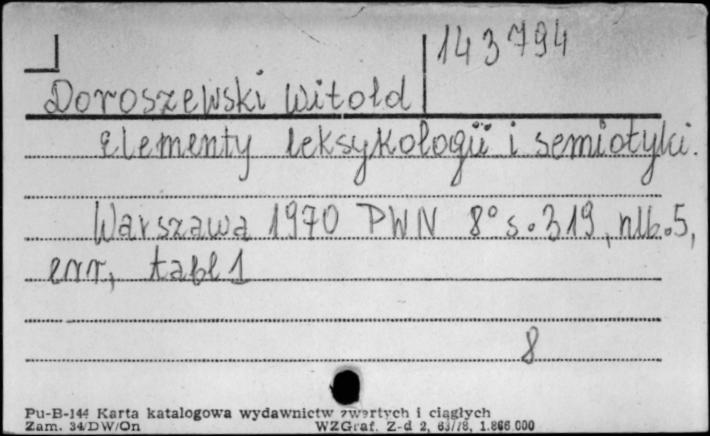 143794
Doroszewski Witold
Elementy leksykologii i semiotyki.
Warszawa 1970 PWN 8° s. 319, nlb. 5,
err, tabl 1
8
Pu-B-144 Karta katalogowa wydawnictw zwartych i ciągłych
Zam. 34/DW/On WZGraf. Z-d 2, 63/78, 1.866.000